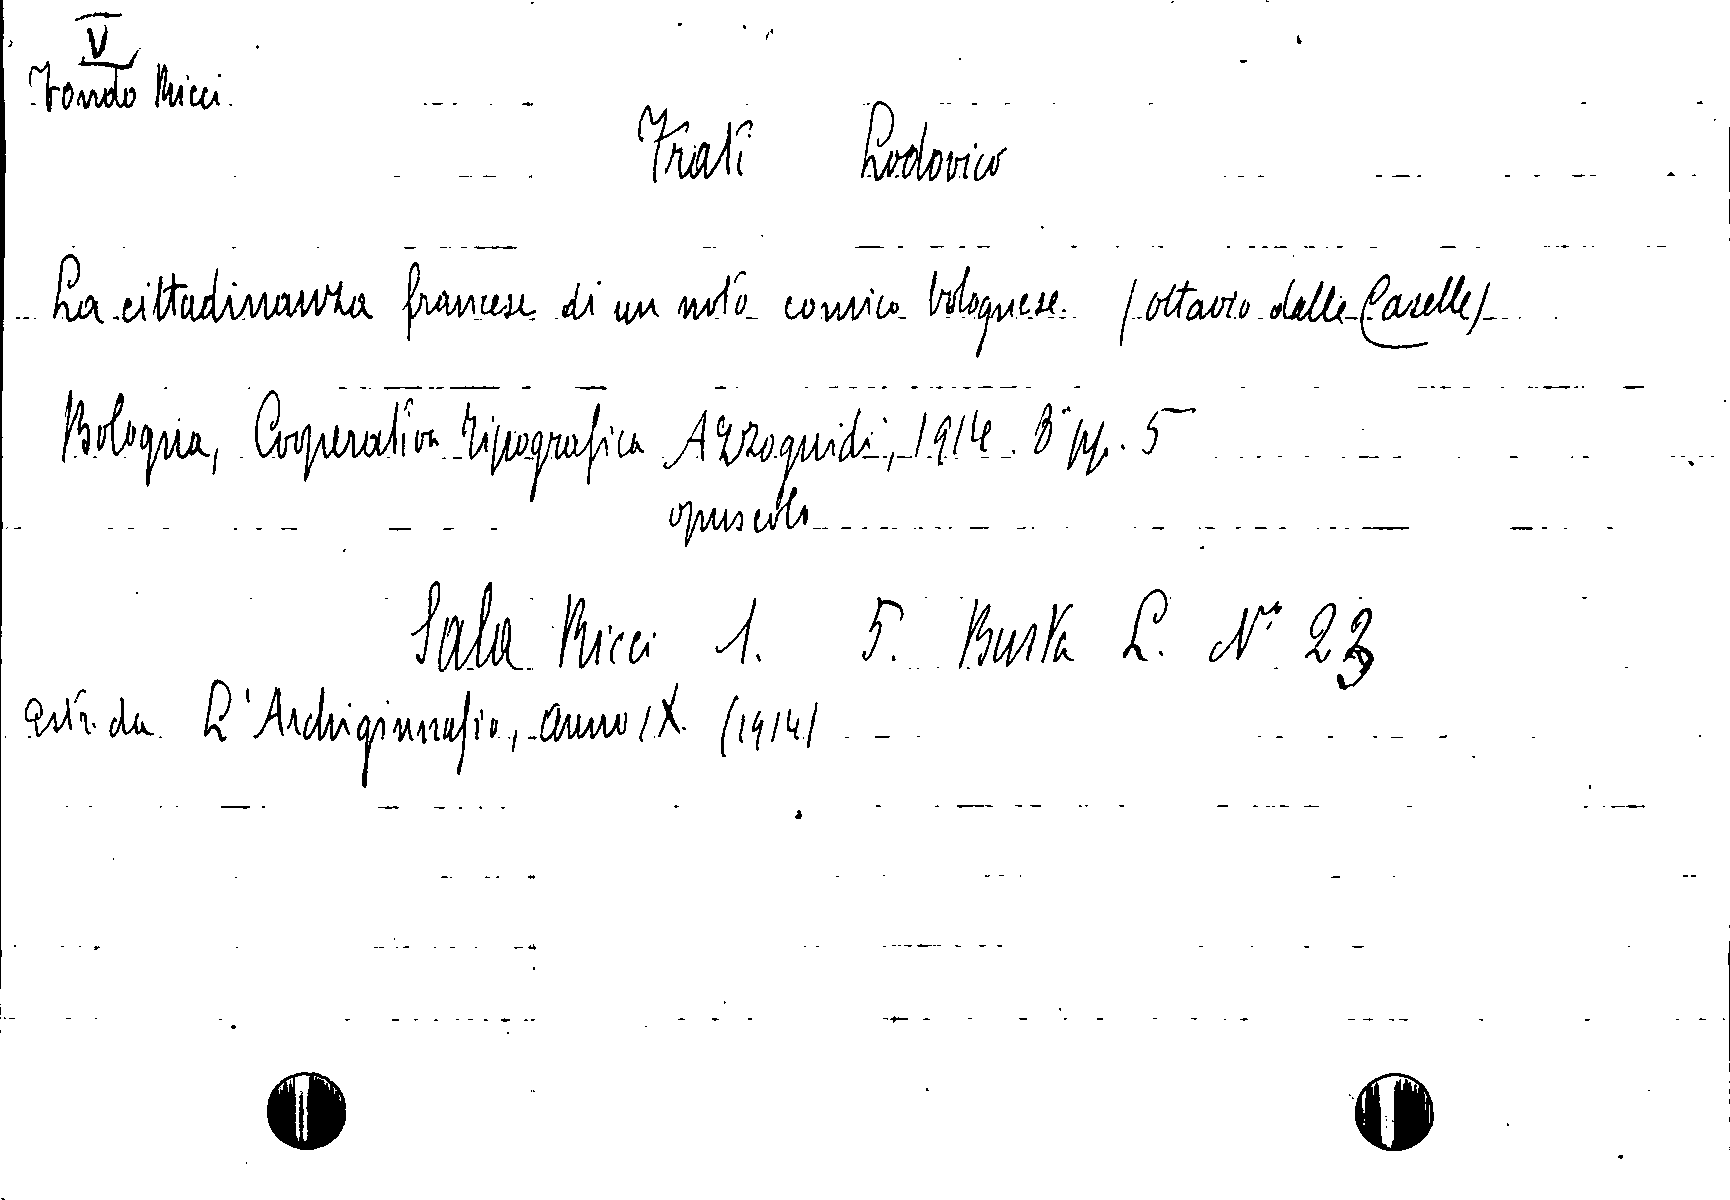 V
Fondo Ricci
Frati Lodovico
La cittadinanza francese di un noto comico bolognese. (Ottavio dalle Caselle)
Bologna, Cooperativa Tipografica Azzoguidi, 1914. 8° pp. 5
opuscolo
Sala Ricci 1. 5. Busta L. N° 23
Estr. da L'Archiginnasio, anno IX. (1914)